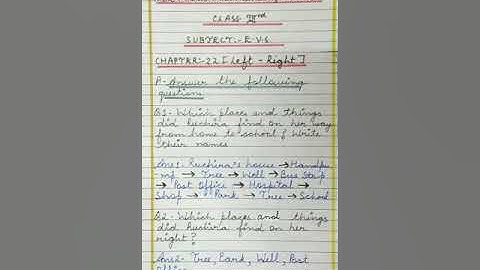 CLASS- IIIrd
SUBJECT:- E.V.S.
CHAPTER:-22 [Left - Right]
A- Answer the following
questions
Q1- Which places and things
did Ruchira find on her way
from home to school & write
their names
Ans1- Ruchira's house → Handpu
mp → Tree → Well → Bus Stop
→ Post Office → Hospital →
Shop → Park → Tree → School
Q2- Which places and things
did Ruchira find on her
right?
Ans2- Tree, Park, Well, Post
Office